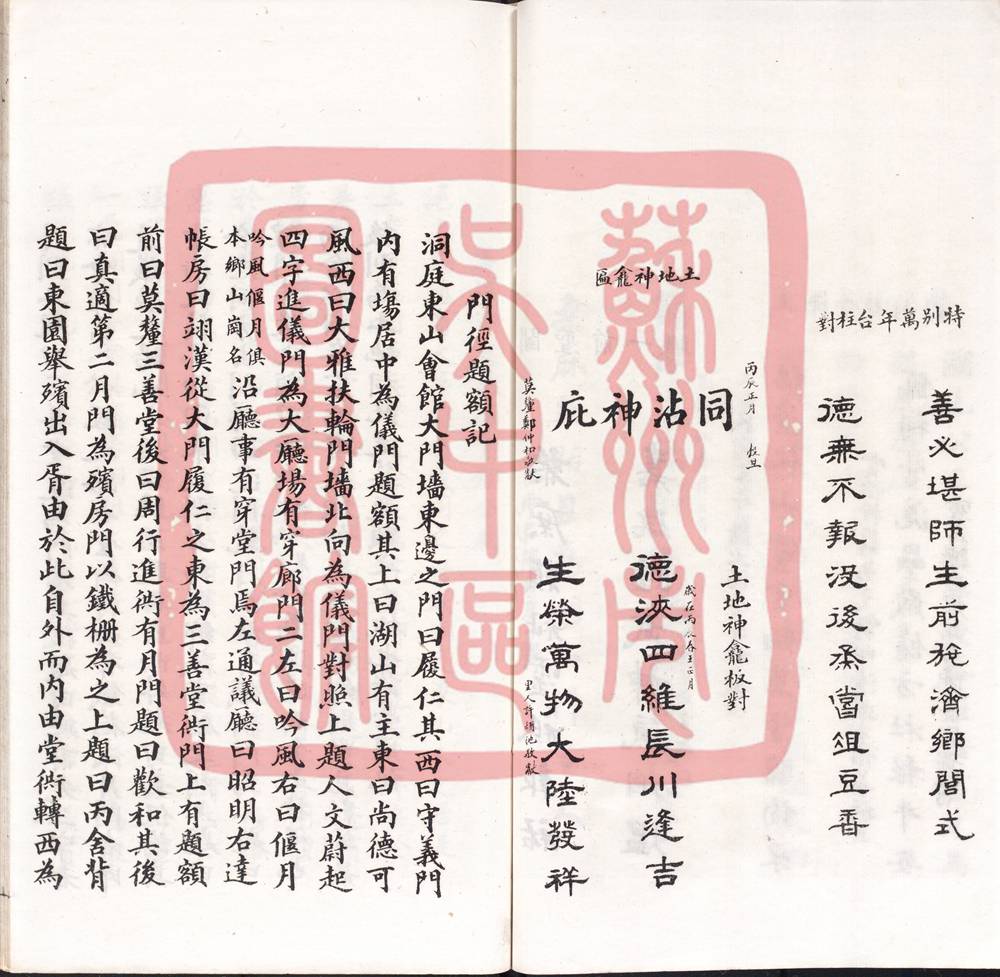 特別萬年台柱對
善必堪師生前施濟鄉閭式
德無不報沒後烝嘗俎豆香
土地神龕匾
丙辰正月 穀旦
同沾神庇
莫釐鄭仲和敬獻
土地神龕板對
德浹四維長川逢吉
歲在丙辰春王正月
生榮萬物大陸發祥
里人許
敬獻
門徑題額記
洞庭東山會館大門墻東邊之門曰履仁其西曰守義門
內有塲居中為儀門題額其上曰湖山有主東曰尚德可
風西曰大雅扶輪門墻北向為儀門對照上題人文蔚起
四字進儀門為大廳塲有穿廊門二左曰吟風右曰偃月
吟風偃月俱
本鄉山崗名
沿廳事有穿堂門焉左通議廳曰昭明右達
帳房曰翊漢從大門履仁之東為三善堂衖門上有題額
前曰莫釐三善堂後曰周行進衖有月門題曰歡和其後
曰真適第二月門為殯房門以鐵柵為之上題曰丙舍背
題曰東園舉殯出入胥由於此自外而內由堂衖轉西為
蘇州市
吳中區
圖書館